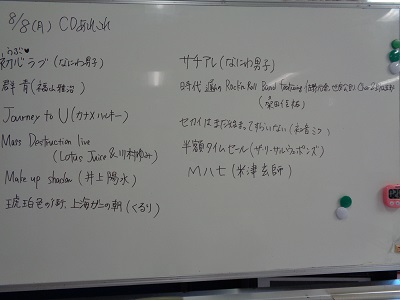 8/8(月) CDあれこれ
うぶ♥
初心ラブ(なにわ男子)
群青(福山雅治)
Journey to U(カナメハルキー)
Mass Destruction live
(Lotus Juice &川村ゆみ)
Make up shadow(井上陽水)
琥珀色の街、上海ガニの朝(くるり)
サチアレ(なにわ男子)
時代遅のRock'n'Roll Band
(桑田佳祐)
セカイはまだ始まってすらいない(初音ミク)
半額タイムセール(ザ・リーサルウェポンズ)
M八七(米津玄師)